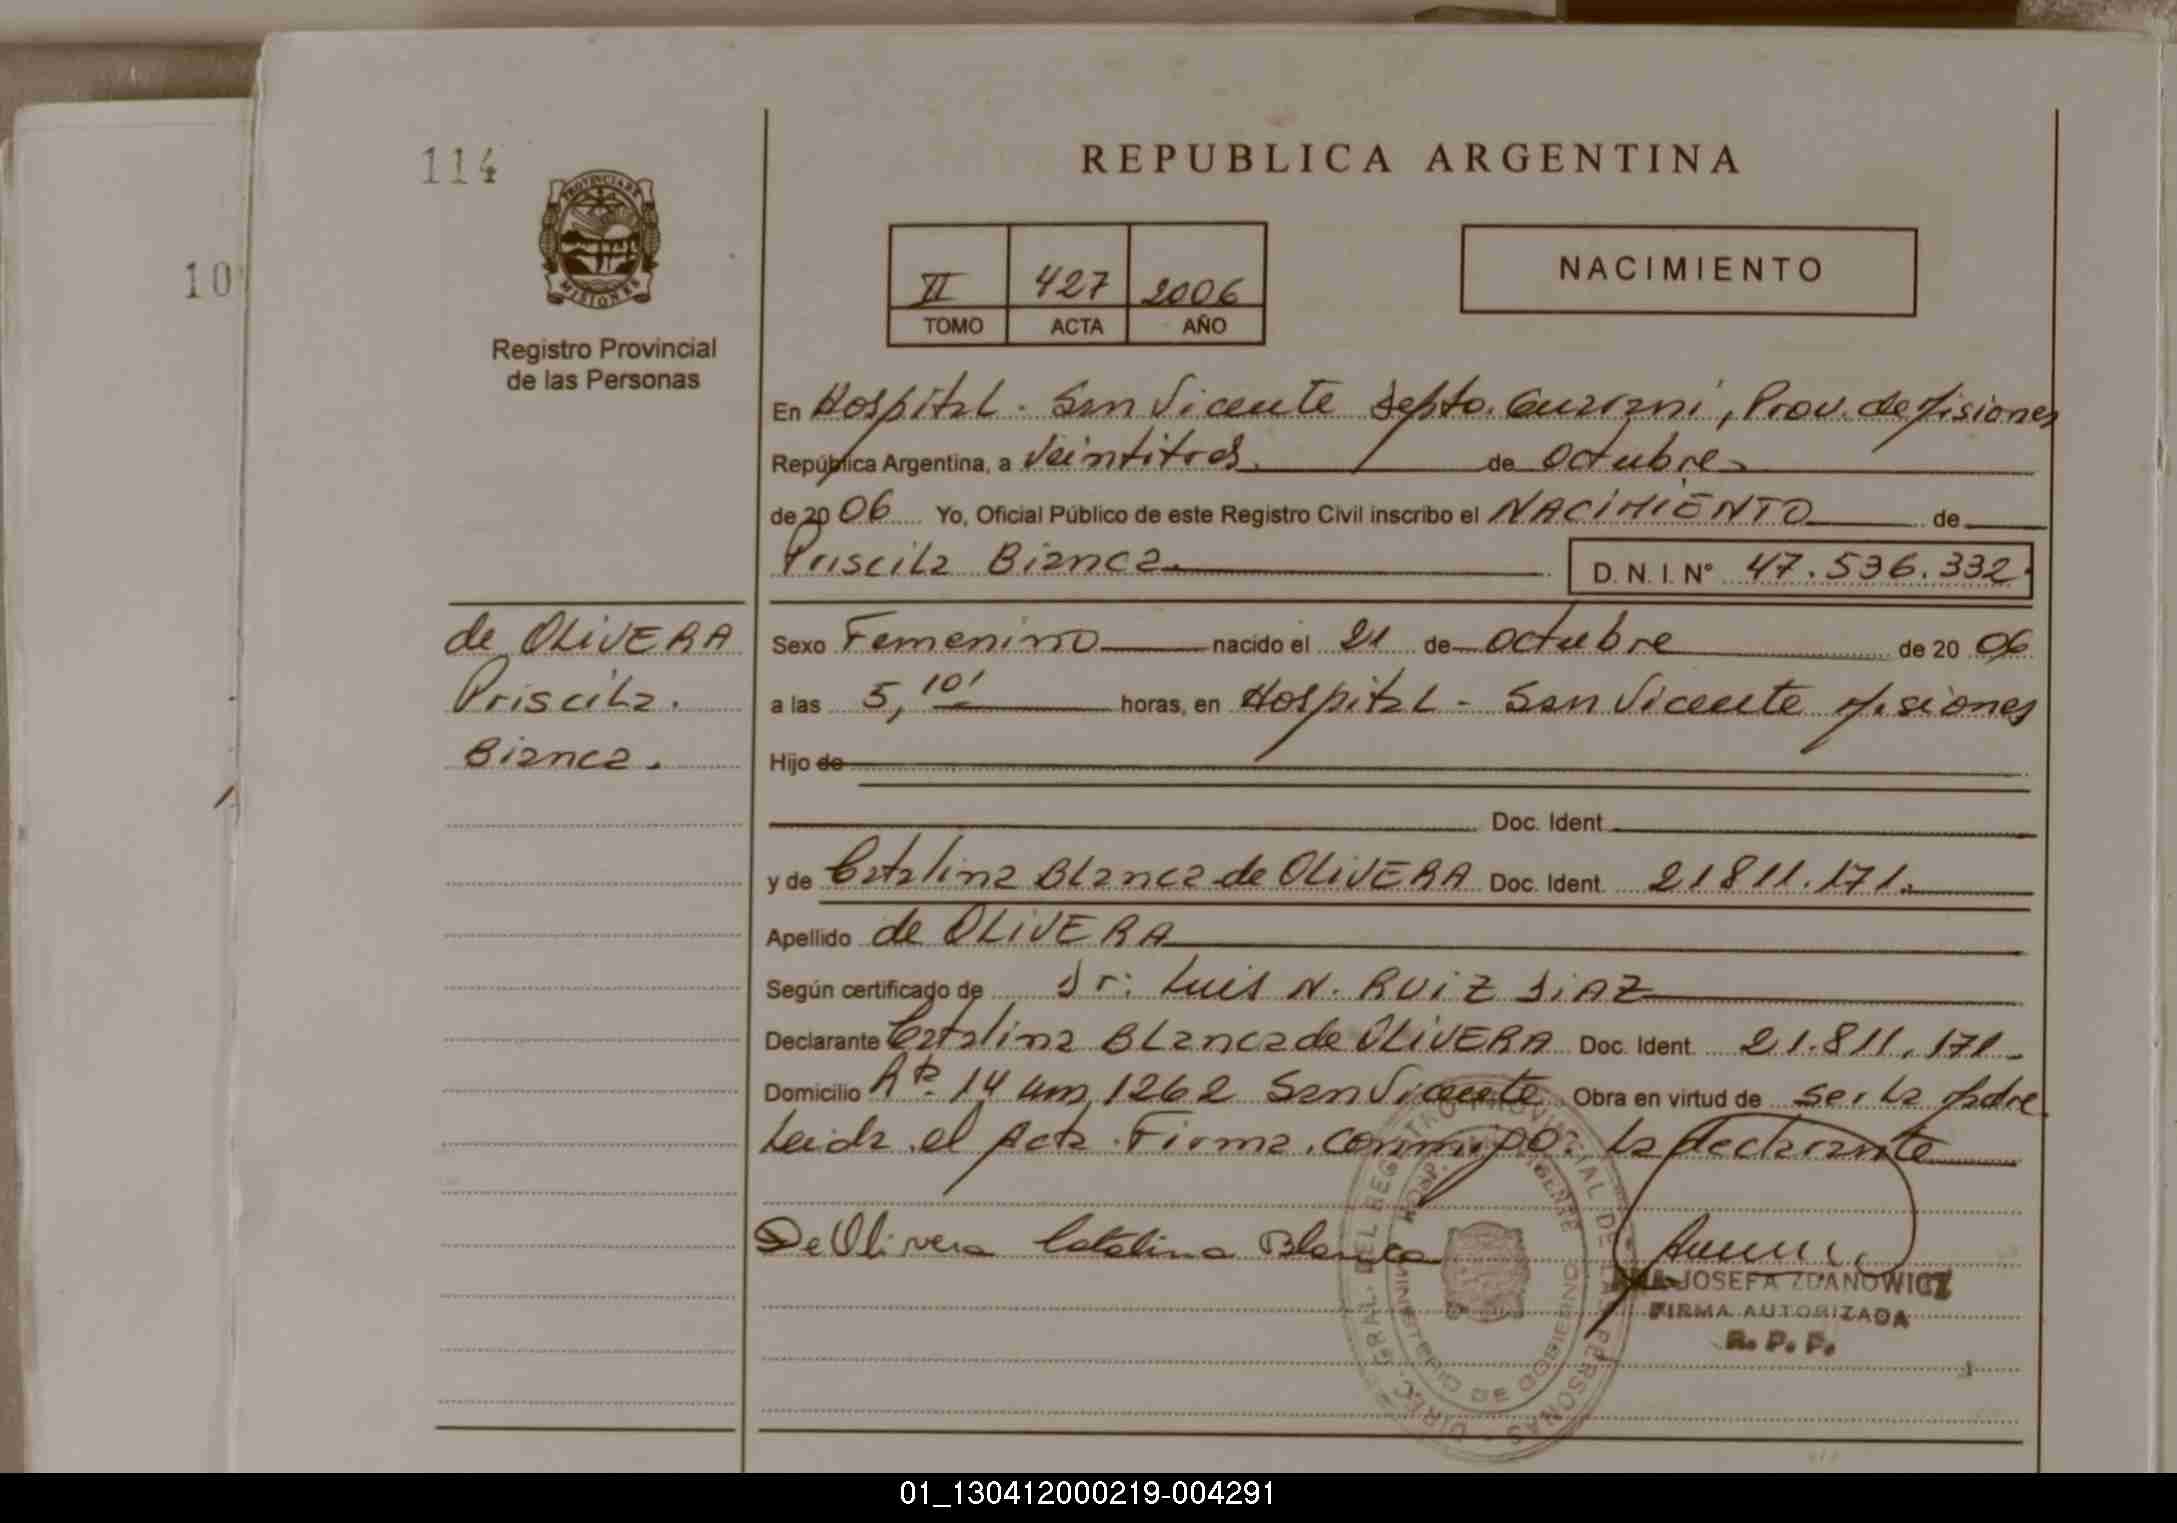 114
10
PROVINCIA DE
MISIONES
Registro Provincial
de las Personas
REPUBLICA ARGENTINA
II 427 2006
TOMO ACTA AÑO
NACIMIENTO
En Hospital - San Vicente Depto. Guaraní, Prov. de Misiones
República Argentina, a Veintitres de octubre
de 2006 Yo, Oficial Público de este Registro Civil inscribo el NACIMIENTO de
Priscila Bianca D. N. I. N° 47.536.332
de OLIVERA
Priscila.
Bianca.
Sexo Femenino nacido el 21 de octubre de 20 06
a las 5,10' horas, en Hospital - San Vicente Misiones
Hijo de
Doc. Ident.
y de Catalina Blanca de OLIVERA Doc. Ident. 21811.171.
Apellido de OLIVERA
Según certificado de Dr: Luis N. RUIZ DIAZ
Declarante Catalina Blanca de OLIVERA Doc. Ident. 21.811.171
Domicilio 14 1262 San Vicente Obra en virtud de ser la Madre
Leida el Acta Firma conmigo: la declarante
De Olivera Catalina Blanca
JOSEFA ZDANOWICZ
FIRMA AUTORIZADA
R. P. P.
DIREC. GRAL. DEL REGISTRO PROVINCIAL DE LAS PERSONAS
MINISTERIO DE GOBIERNO
HOSP.
01_130412000219-004291